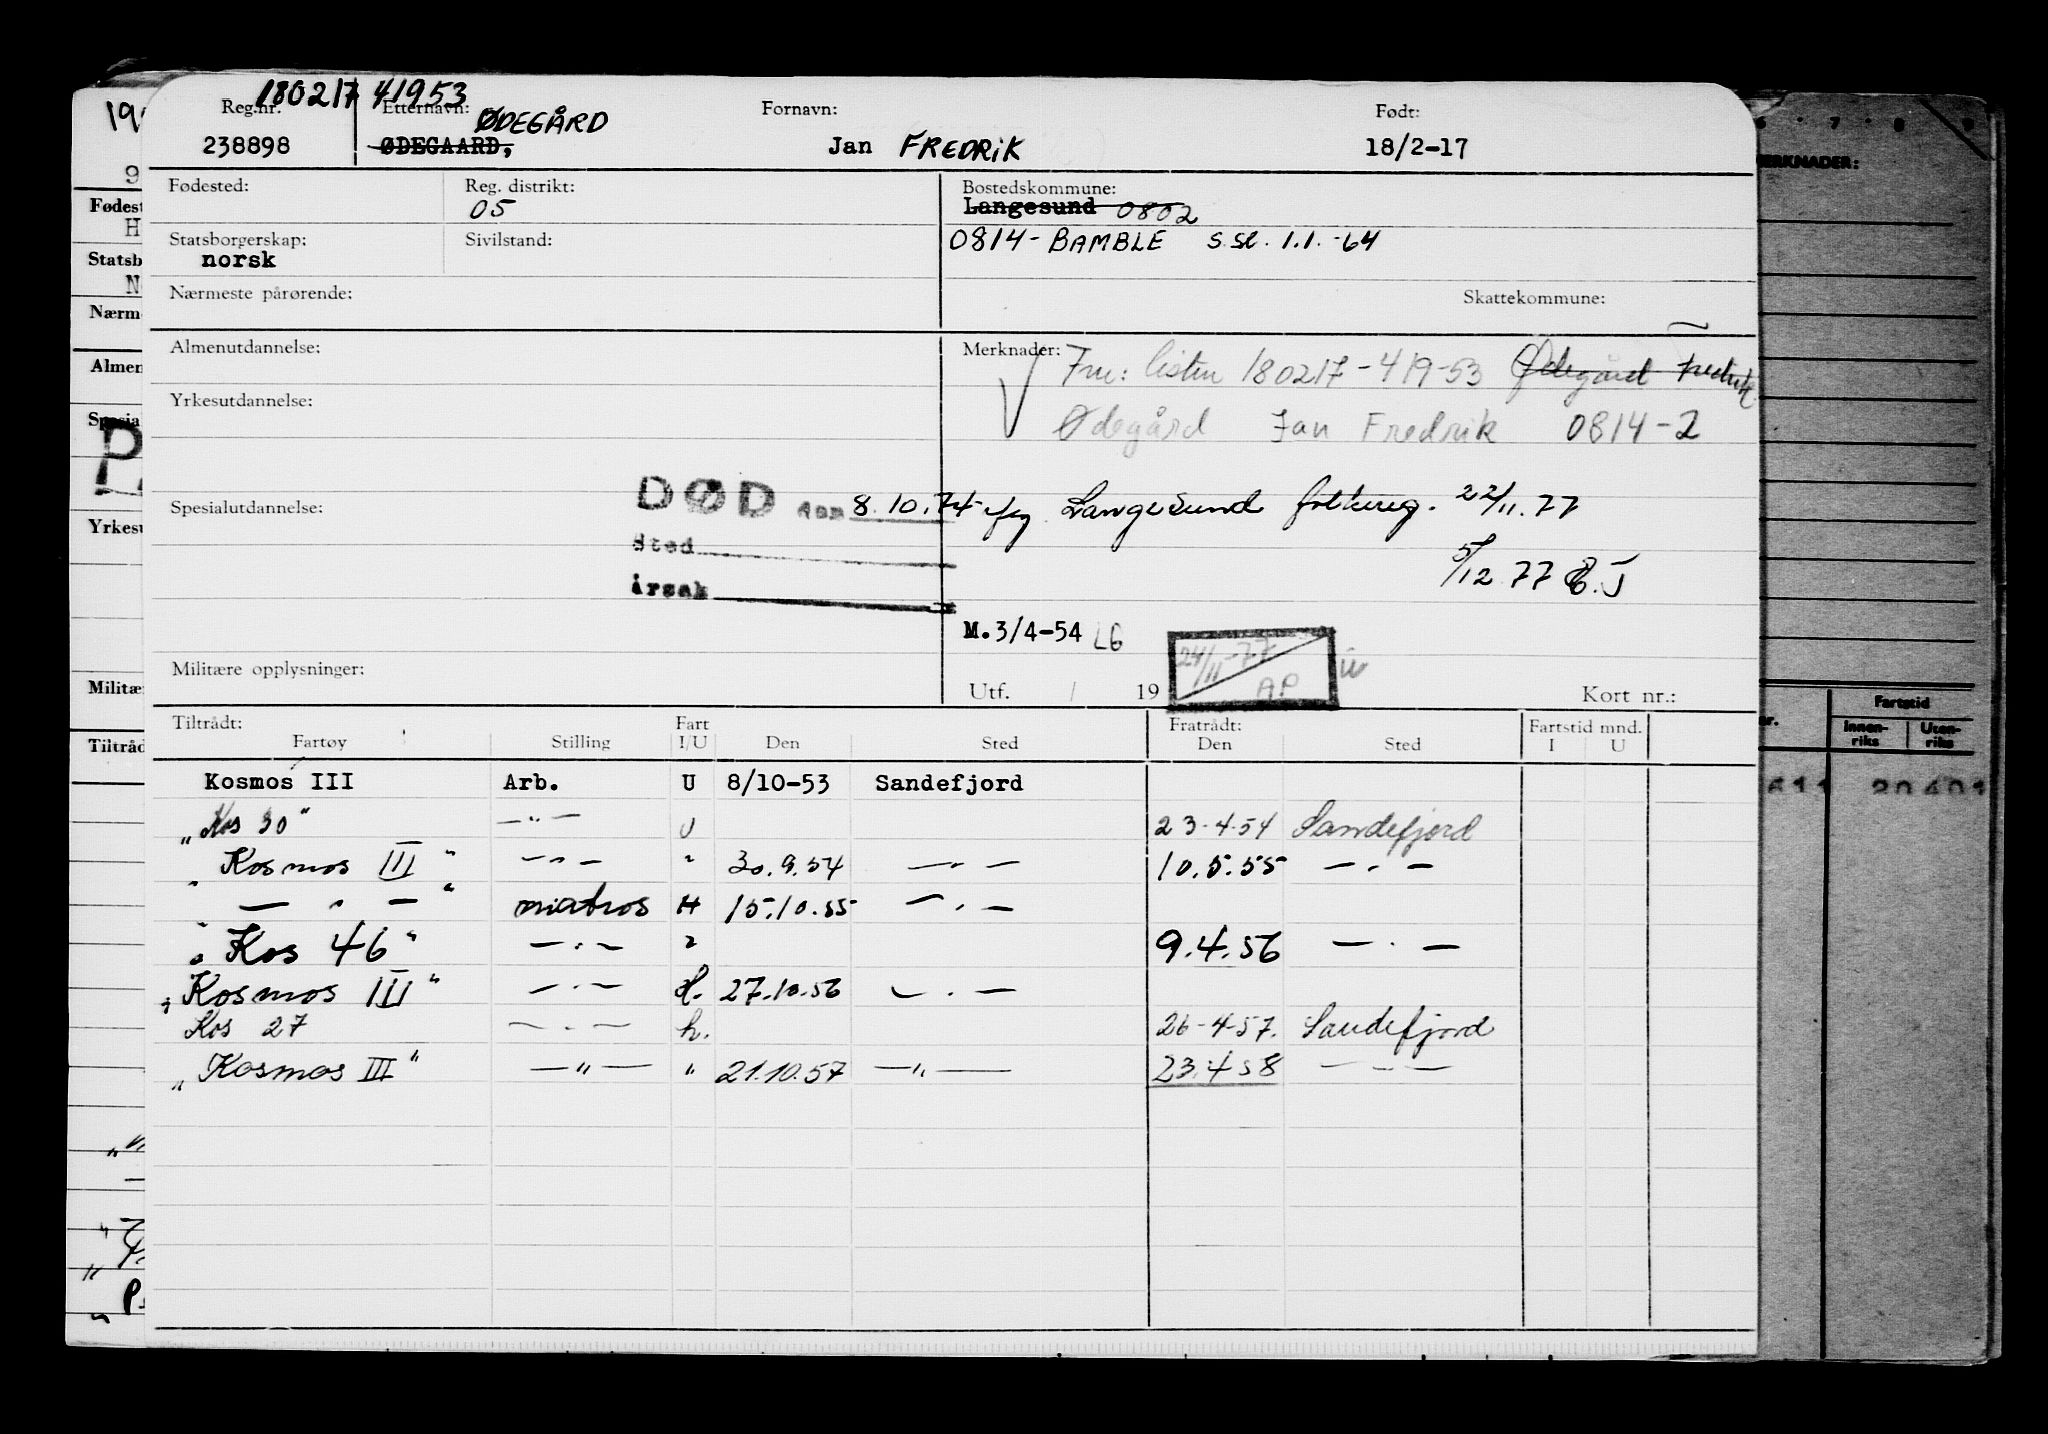 180217 41953
Reg.nr. Etternavn: Fornavn: Født:
ØDEGÅRD
238898 ØDEGAARD, Jan FREDRIK 18/2-17
Fødested: Reg. distrikt: Bostedskommune:
05 Langesund 0802
Statsborgerskap: Sivilstand: 0814-BAMBLE s.sl. 1.1.-64
norsk
Nærmeste pårørende: Skattekommune:
Almenutdannelse: Merknader: listen 180217-419-53 Ødegård Fredrik
Yrkesutdannelse: Ødegård Jan Fredrik 0814-2
Spesialutdannelse: DØD den 8.10.74 Langesund folkereg. 22/11.77
Sted
årsak 5/12 77
M.3/4-54 LG
24/11-77
AP
Militære opplysninger: Utf. / 19 Kort nr.:
Tiltrådt: Fart Fratrådt: Fartstid mnd.
Fartøy Stilling I/U Den Sted Den Sted I U
Kosmos III Arb. U 8/10-53 Sandefjord
"Kos 30" —"— U 23-4-54 Sandefjord
"Kosmos III" —"— " 30.9.54 —"— 10.5.55 —"—
"—"—" matros H 15.10.55 —"—
"Kos 46" —"— " 9.4.56 —"—
"Kosmos III" —"— H. 27.10.56 —"—
Kos 27 —"— h. 26-4-57. Sandefjord
"Kosmos III" —"— " 21.10.57 —"— 23.4 58 —"—
MERKNADER:
6 7 8 9
Fartstid
Innen-riks Uten-riks
611 20401